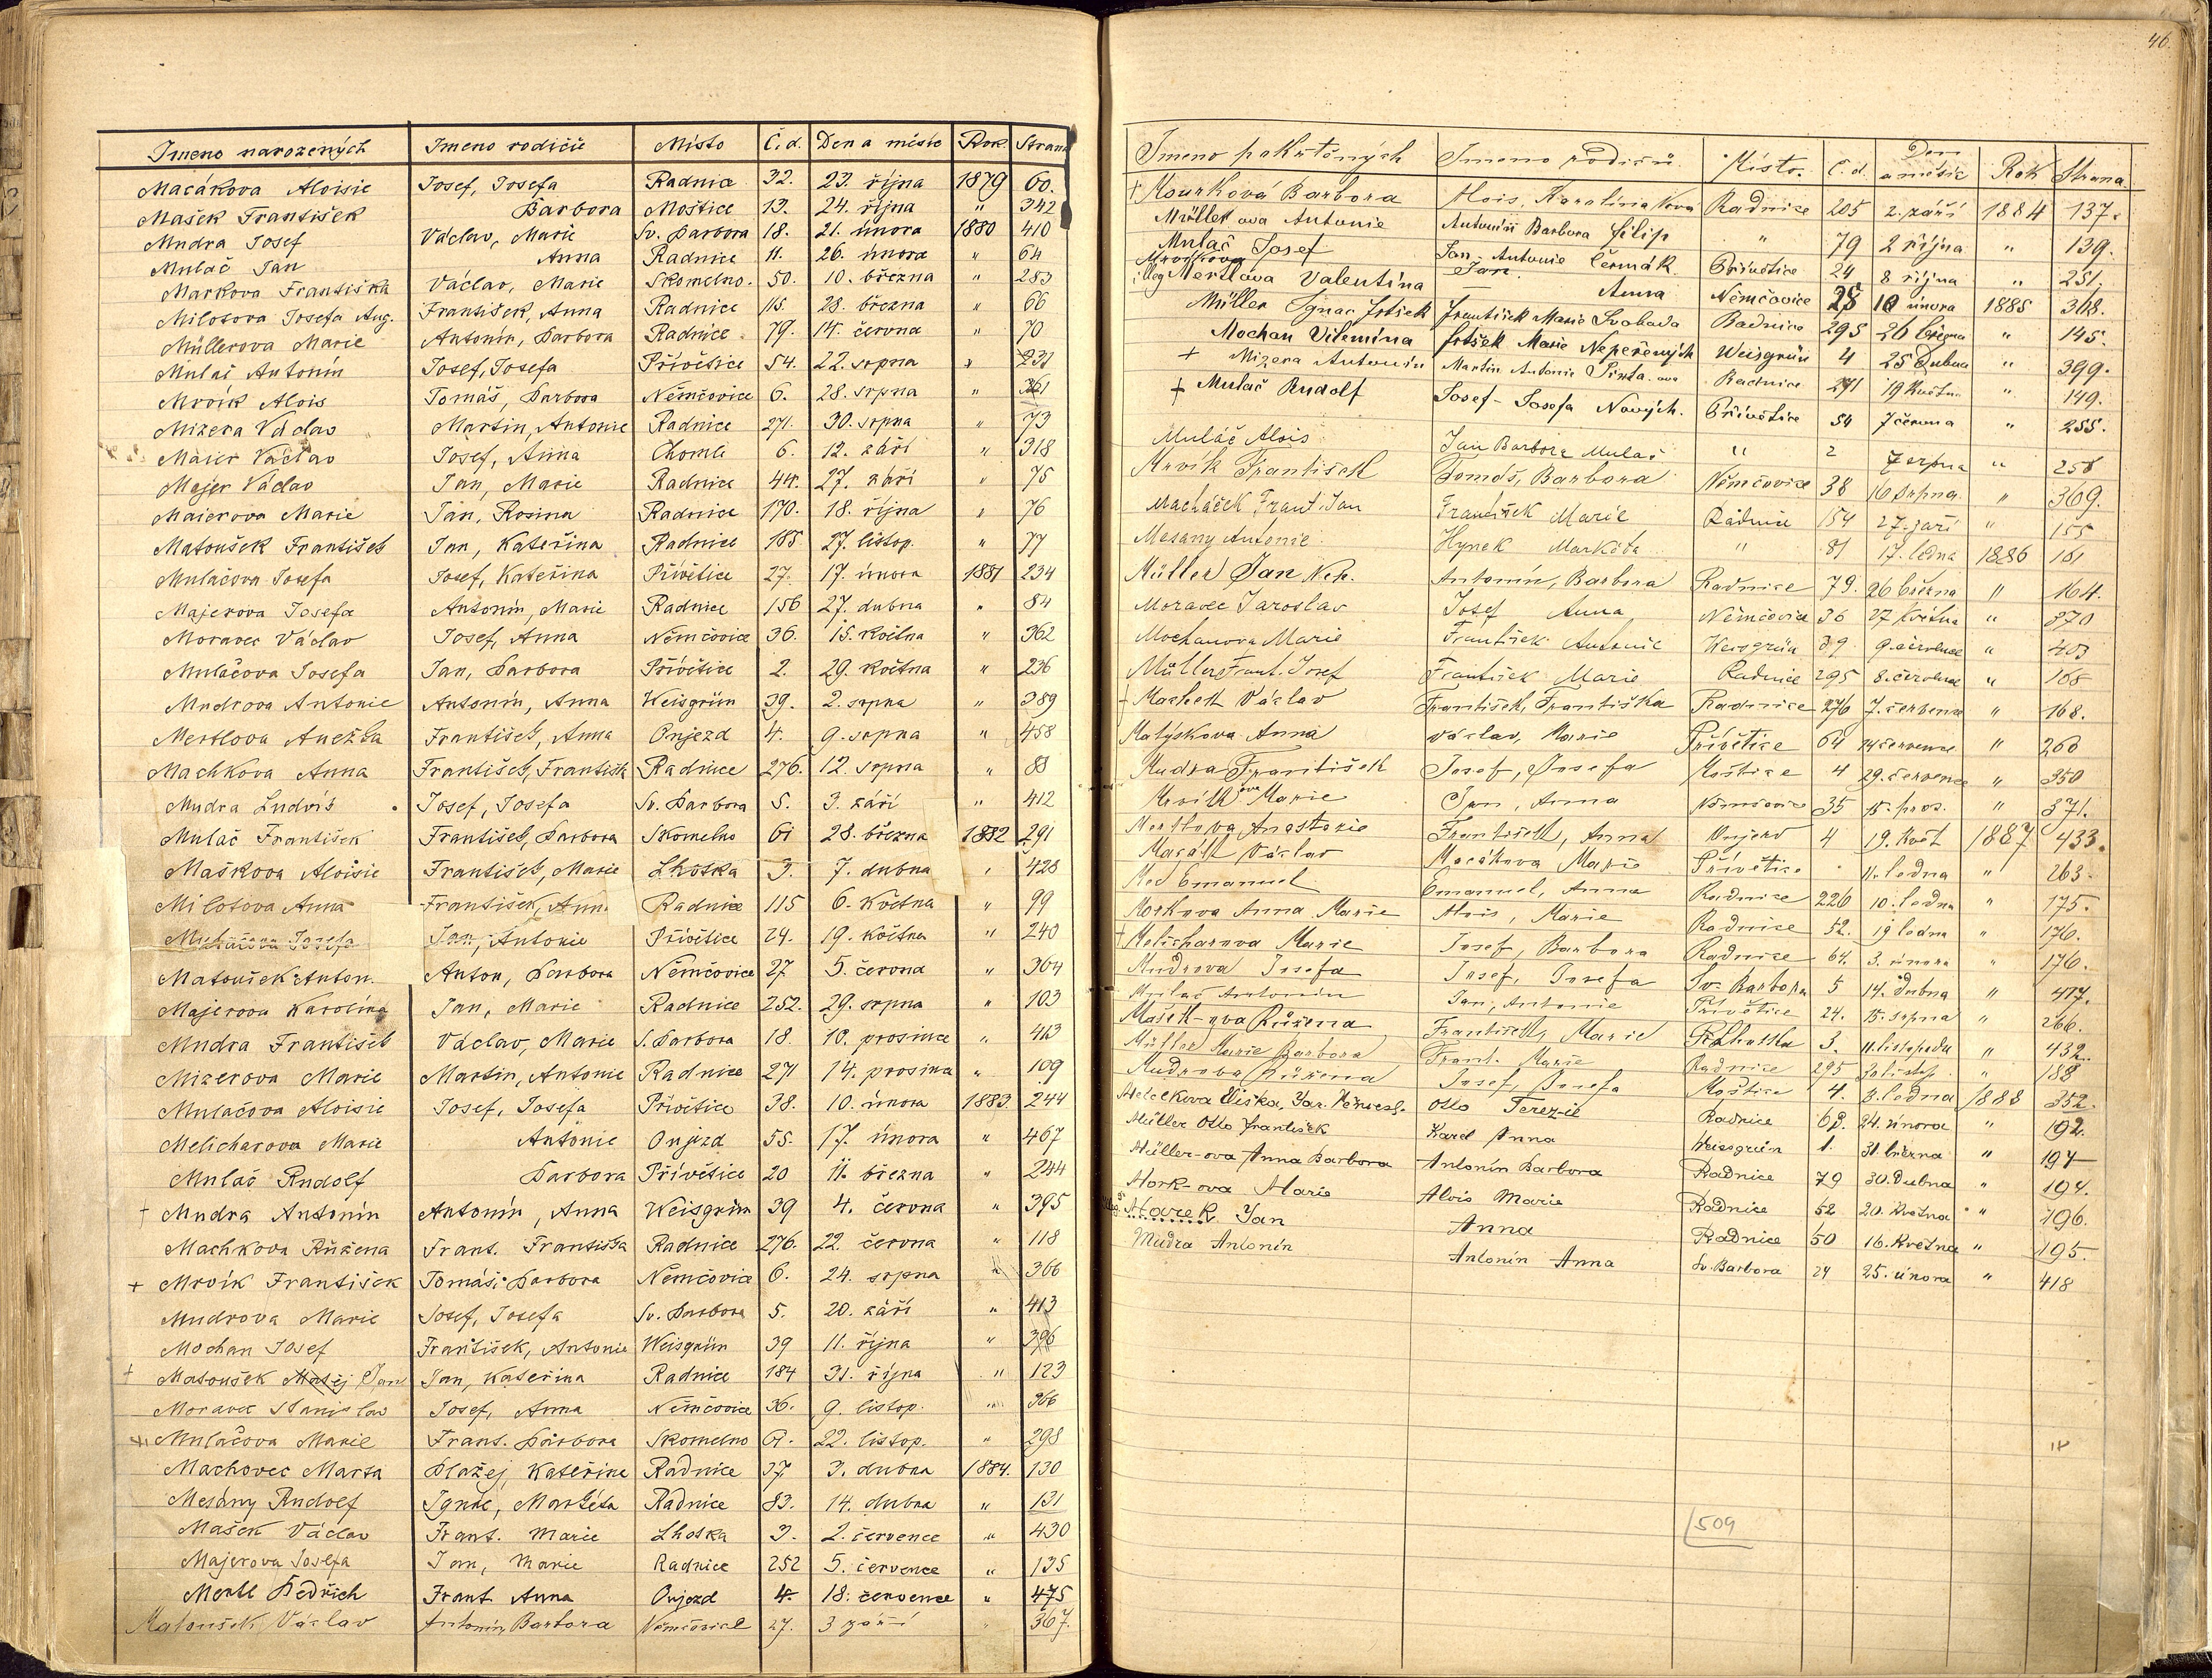 46.
Jmeno narozených Jmeno rodičů Místo Č. d. Den a měsíc Rok Strana
Macákova Aloisie Josef, Josefa Radnice 32. 23. října 1879 60.
Mašek František Barbora Moštice 13. 24. října " 342
Mudra Josef Václav, Marie Sv. Barbora 18. 21. února 1880 410
Mulač Jan Anna Radnice 11. 26. února " 64
Markova Františka Václav, Marie Skomelno. 50. 10. března " 283
Milotova Josefa Aug. František, Anna Radnice 115. 28. března " 66
Müllerova Marie Antonín, Barbora Radnice 79. 14. června " 70
Mulač Antonín Josef, Josefa Přívětice 54. 22. srpna " 231
Mrvík Alois Tomáš, Barbora Němčovice 6. 28. srpna " 361
Mizera Václav Martin, Antonie Radnice 271. 30. srpna " 73
Maier Václav Josef, Anna Chomle 6. 12. září " 318
Majer Václav Jan, Marie Radnice 44. 27. září " 75
Maierova Marie Jan, Rosina Radnice 170. 18. října " 76
Matoušek František Jan, Kateřina Radnice 185. 27. listop. " 77
Mulačova Josefa Josef, Kateřina Přívětice 27. 17. února 1881 234
Majerova Josefa Antonín, Marie Radnice 156 27. dubna " 84
Moravec Václav Josef, Anna Němčovice 36. 15. května " 362
Mulačova Josefa Jan, Barbora Přívětice 2. 29. května " 236
Mudrova Antonie Antonín, Anna Weisgrün 39. 2. srpna " 389
Mertlova Anežka František, Anna Oujezd 4. 9. srpna " 458
Machkova Anna František, Františk Radnice 276. 12. srpna " 88
Mudra Ludvík Josef, Josefa Sv. Barbora 5. 3. září " 412
Mulač František František, Barbora Skomelno 61 28. března 1882 291
Maškova Aloisie František, Marie Lhotka 3. 7. dubna " 428
Milotova Anna František, Anna Radnice 115 6. května " 99
Mulačova Josefa Jan, Antonie Přívětice 24. 19. května " 240
Matoušek Anton. Anton, Barbora Němčovice 27 5. června " 364
Majerova Karolína Jan, Marie Radnice 252. 29. srpna " 103
Mudra František Václav, Marie S. Barbora 18. 10. prosince " 413
Mizerova Marie Martin, Antonie Radnice 271 14. prosince " 109
Mulačova Aloisie Josef, Josefa Přívětice 38. 10. února 1883. 244
Melicharova Marie Antonie Oujezd 55. 17. února " 467
Mulač Rudolf Barbora Přívětice 20 11. března " 244
† Mudra Antonín Antonín, Anna Weisgrün 39 4. června " 395
Machkova Růžena Frant. Františka Radnice 276. 22. června " 118
+ Mrvík František Tomáš, Barbora Němčovice 6. 24. srpna " 366
Mudrova Marie Josef, Josefa Sv. Barbora 5. 20. září " 413
Mochan Josef František, Antonie Weisgrün 39 11. října " 396
† Matoušek Matěj Jan Jan, Kateřina Radnice 184 31. října " 123
Moravec Stanislav Josef, Anna Němčovice 36. 9. listop. " 366
+ Mulačova Marie Frant. Barbora Skomelno 61. 22. listop. " 298
Machovec Marta Blažej Kateřina Radnice 37. 3. dubna 1884. 130
Mesány Rudolf Ignác, Markéta Radnice 83. 14. dubna " 131
Mašek Václav Frant. Marie Lhotka 3. 2. července " 430
Majerova Josefa Jan, Marie Radnice 252 5. července " 135
Mertl Bedřich Frant Anna Oujezd 4. 18. července " 475
Matoušek Václav Antonín, Barbora Němčovice 27. 3 září " 367.
Jmeno pokřtěných Jmeno rodičů Místo. Č. d. Den a měsíc Rok Strana.
† Mourková Barbora Alois, Karolina Radnice 205 2. září 1884 137.
Müllerova Antonie Antonín Barbora Filip " 79 2 října " 139.
Mulač Josef Jan Antonie Čermák Přívětice 24 8 října " 251.
illeg Mertlova Valentina Anna Němčovice 28 10 února 1885 368.
Müller Ignac Frtšek František Marie Svoboda Radnice 295 26 března " 145.
Mochan Vilemína Frtšek Marie Nepeřených Weisgrün 4 25 Dubna " 399.
+ Mizera Antonín Martin Antonie Radnice 271 19 Května " 149.
+ Mulač Rudolf Josef - Josefa Nových. Přívětice 54 7 června " 255.
Muláč Alois Jan Barbora Mulač " 2 7 srpna " 258
Mrvík František Tomáš, Barbora Němčovice 38 16 srpna " 369.
Macháček Frant. Jan František Marie Radnice 154 27. září " 155
Mesany Antonie Hynek Markéta " 81 17. ledna 1886 161
Müller Jan Nep. Antonín, Barbora Radnice 79. 26 března " 164.
Moravec Jaroslav Josef Anna Němčovice 36 27 května " 370
Mochanova Marie František Antonie Weisgrün 39 9. července " 403
Müller Frant. Josef František Marie Radnice 295 8. července " 168
† Machek Václav František, Františka Radnice 276 7. července " 168.
Matýskova Anna Václav, Marie Přívětice 64 14 července " 260
Mudra František Josef, Josefa Moštice 4 29. července " 350
Mrvíkova Marie Jan, Anna Němčovice 35 15. pros. " 371.
Mertlova Anastazie František, Anna Oujezd 4 19. květ 1887 433.
Macák Václav Macákova Marie Přívětice " 11. ledna " 263.
Med Emanuel Emanuel, Anna Radnice 226 10. ledna " 175.
Morkova Anna Marie Alois, Marie Radnice 52. 19 ledna " 176.
† Melicharova Marie Josef, Barbora Radnice 64. 3. února " 176.
Mudrova Josefa Josef, Josefa Sv. Barbora 5 14. dubna " 417.
Mulač Antonín Jan, Antonie Přívětice 24. 15. srpna " 266.
Mašek-ova Růžena František, Marie Lhotka 3. 11. listopadu " 432.
Müller Marie Barbora Frant. Marie Radnice 295 " 188
Mudrova Růžena Josef, Josefa Moštice 4. 8. ledna 1888 352.
Otto Terezie Radnice 68. 24. února " 192.
Müller Otto František Karel Anna Weissgrün 1. 31. března " 194
Müller-ova Anna Barbora Antonín Barbora Radnice 79 30. Dubna " 194.
Mork-ova Marie Alois Marie Radnice 52 20. Května " 196.
Marek Jan Anna Radnice 50 16. Května " 195
Mudra Antonín Antonín Anna Sv. Barbora 24 25. února " 418
509